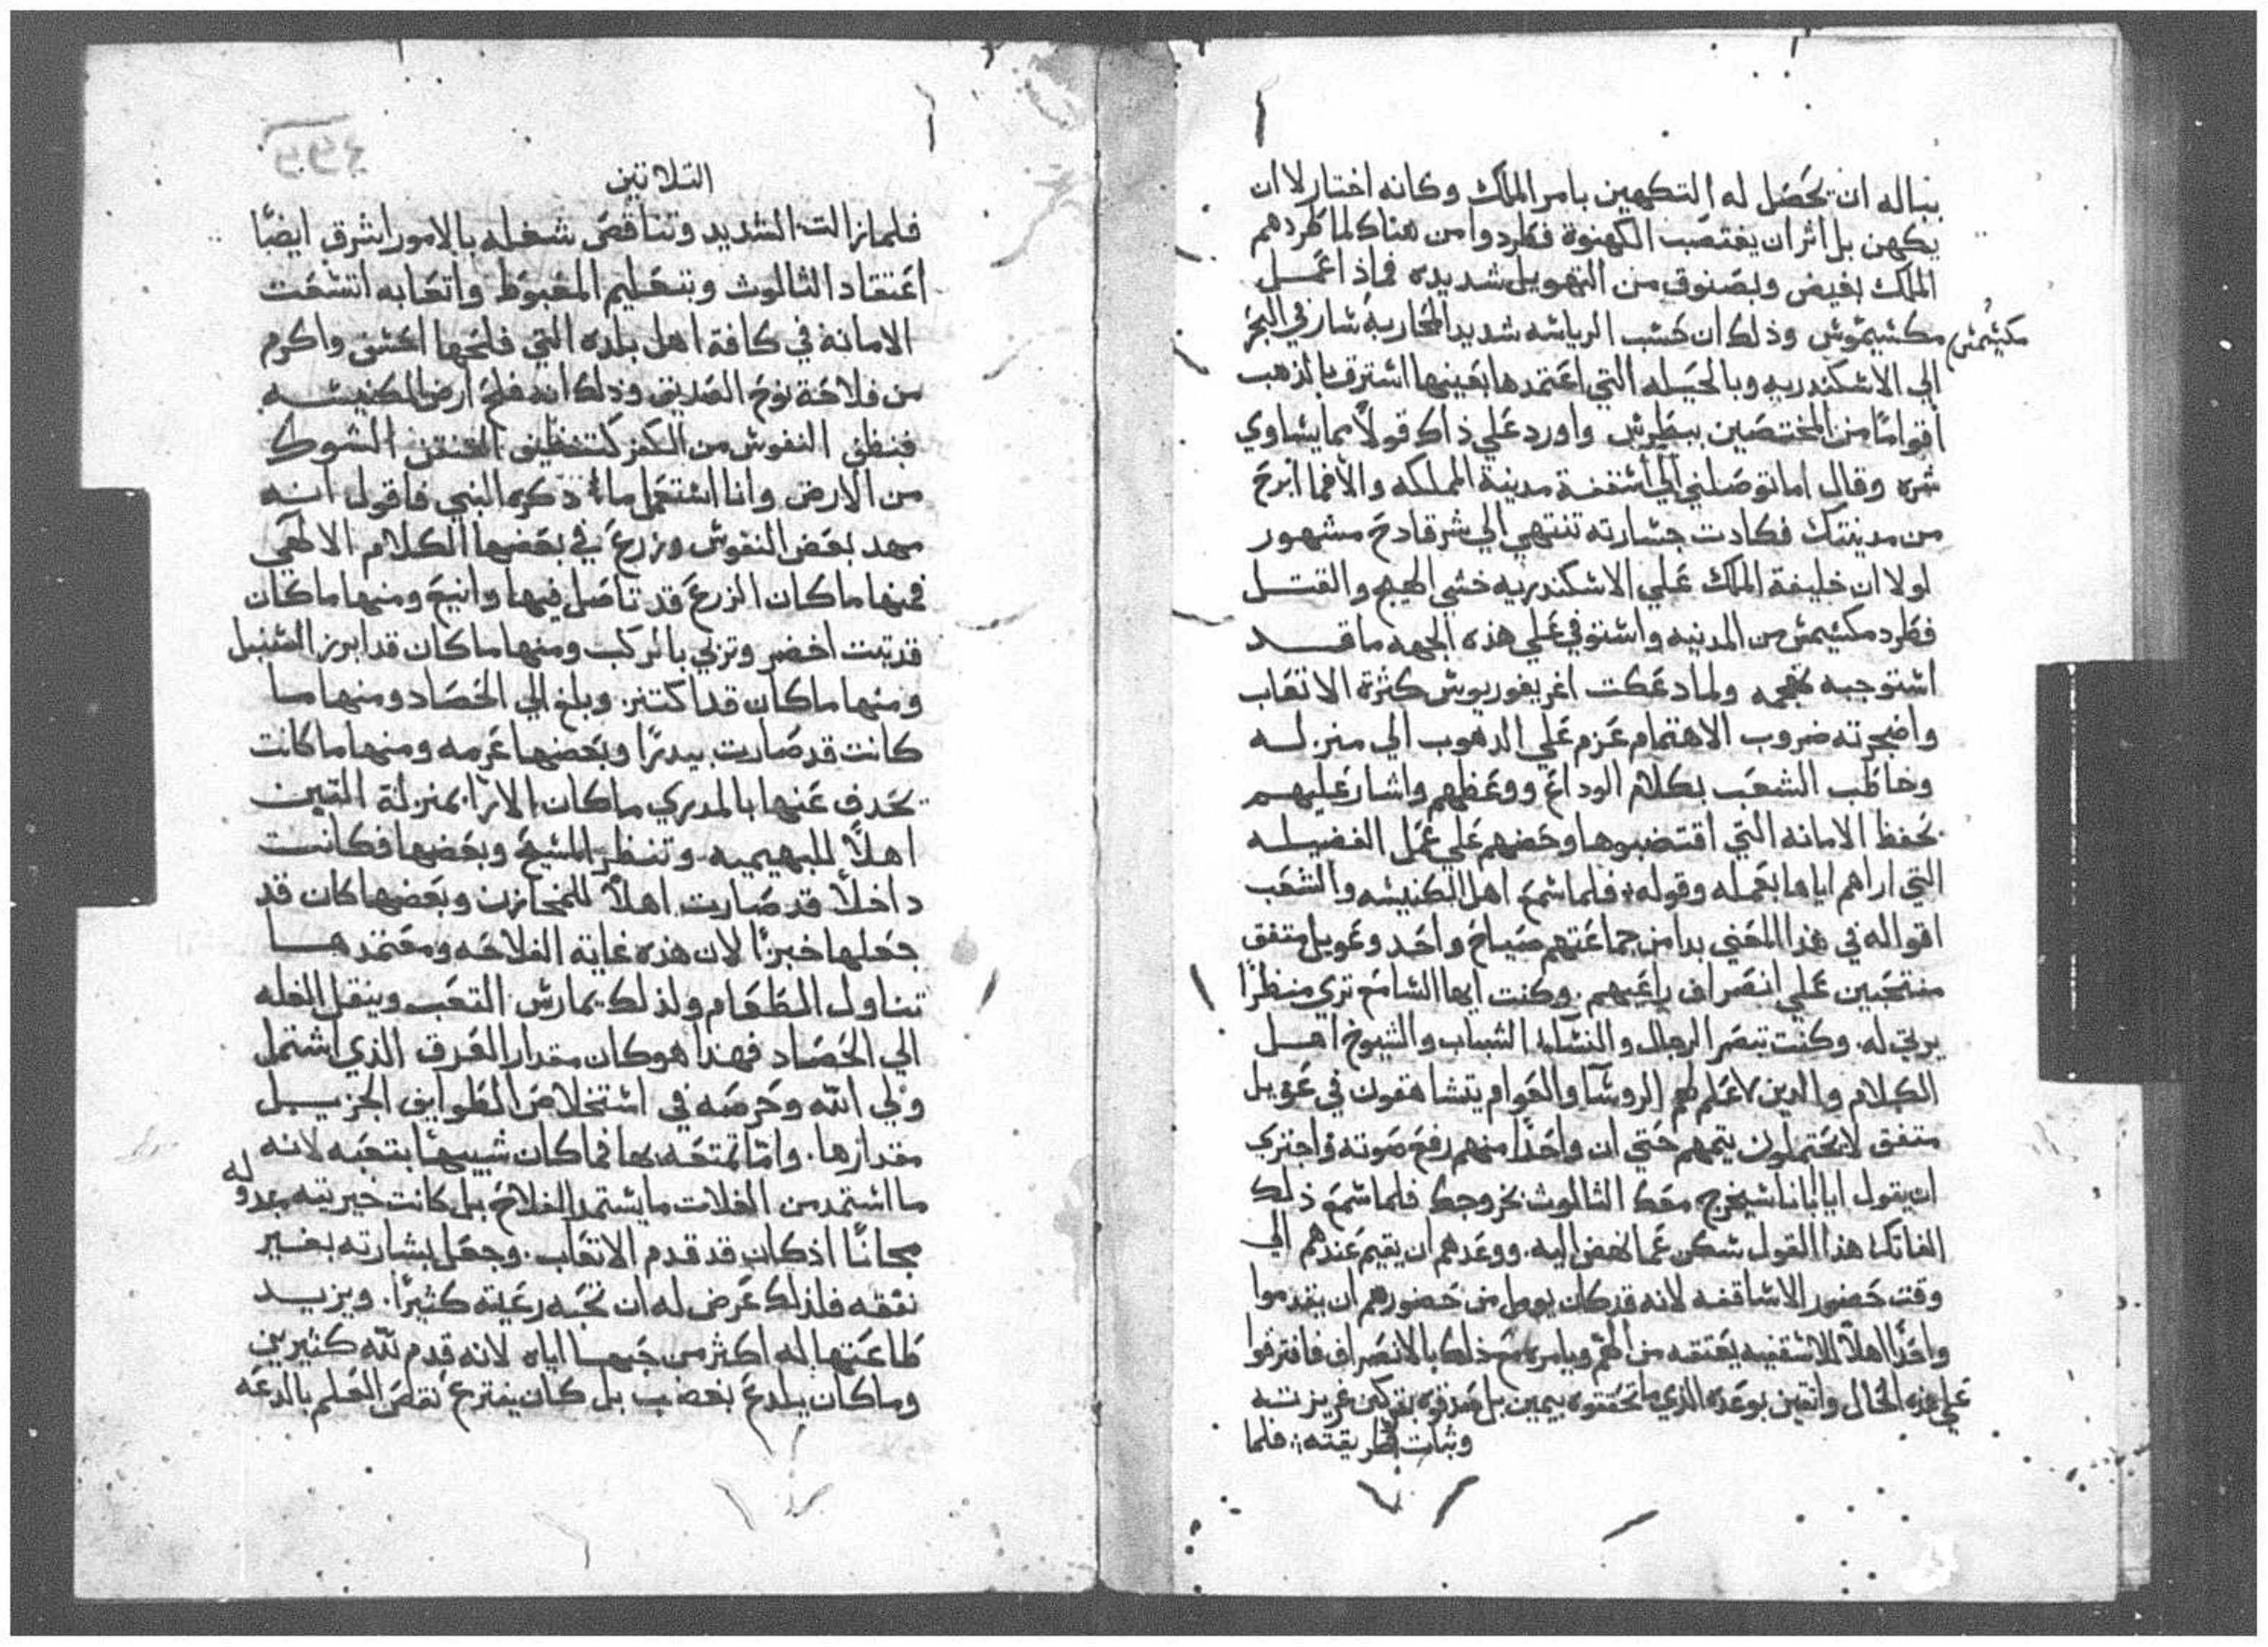 بباله ان تحصل له التكهين بامر الملك وكانه اختار لا ان
يكهن بل اثر ان يغتصب الكهنوة فطردوا من هناك لما طردهم
الملك بغيض وبصنوف من التهويل شديده فماذا عمل
مكسيموس وذلك ان حسب الرياسه شديد المحاربه سار في البحر
مكسيمس
الي الاسكندريه وبالحيله التي اعتمدها بعينها استرق بالذهب
اقواما من المختصين ببطرس واورد علي ذاك قولا مما يساوي
شره وقال اما توصلني الي اسقفية مدينة المملكه والا فما ابرح
من مدينتك فكادت جسارته تنتهي الي شر فادح مشهور
لولا ان خليفة الملك علي الاسكندريه خشي الهيج والقتل
فطرد مكسيمس من المدنيه واستوفي علي هذه الجهه ما قد
استوجبه بقحه ولما دعكت اغريغوريوس كثرة الاتعاب
واضجرته ضروب الاهتمام عزم علي الدهوب الي منزله
وخاطب الشعب بكلام الوداع ووعظهم واشار عليهم
بحفظ الامانه التي اقتضبوها وحضهم علي عمل الفضيله
التي اراهم اياها بعمله وقوله فلما سمع اهل الكنيسه والشعب
اقواله في هذا المعني بدا من جماعتهم صياح واحد وعويل متفق
منتحبين علي انصراف راعيهم. وكنت ايها السامع تري منظرا
يرتي له. وكنت تبصر الرجال والنسا الشباب والشيوخ اهل
الكلام والدين لا علم لهم الروسا والعوام يتشاهقون في عويل
متفق لا يحتملون يتمهم حتي ان واحدا منهم رفع صوته واجتري
ان يقول ايا ابانا سيخرج معك الثالوث بخروجك فلما سمع ذلك
الفاتك هذا القول سكن عما نهض اليه. ووعدهم ان يقيم عندهم الي
وقت حضور الاساقفه لانه قد كان يومل من حضورهم ان يقدموا
واحدا اهلا للاسقفيه يعتقه من الهم ويامر مع ذلك بالانصراف فافترقوا
علي هذه الحال واثقين بوعده الذي ما تحققوه بيمين بل صدقوه بتركين غريزته
وثبات طريقته فلما
الثلاثين
فلما زالت الشديد وتناقص شغله بالامور اشرق ايضا
اعتقاد الثالوث وبتعليم المغبوط واتعابه اتسعت
الامانة في كافة اهل بلده التي فلحها احسن واكرم
من فلاحة نوح الصديق وذلك انه فلح ارض الكنيسه
فنظف النفوس من الكفر كتنظيف الشوك
من الارض وانا استعمل ما ذكره النبي فاقول انه
مهد بعض النفوس وزرع في بعضها الكلام الالهي
فمنها ما كان الزرع قد تاصل فيها وانبع ومنها ما كان
قد تبت اخضر وتزبي بالركب ومنها ما كان قد ابرز السنبل
ومنها ما كان قد اكتنز. وبلغ الي الحصاد ومنها ما
كانت قد صارت بيدرا وبعضها عرمه ومنها ما كانت
تحدف عنها بالمدري ما كان الارا بمنزلة التبن
اهلا للبهيميه وتنظر المسيح وبعضها فكانت
داخلا قد صارت اهلا للمخازن وبعضها كان قد
جعلها خبزا لان هذه غاية الفلاحه ومعتمدها
تناول الطعام ولذلك يمارس التعب وينقل الغله
الي الحصاد فهذا هو كان مقدار العرق الذي اشتمل
ولي الله وحرصه في استخلاص الطوايف الجزيل
مقدارها. واما تمتعه بها فما كان شبيها بتعبه لانه
ما استمد من الغلات ما يستمد الفلاح بل كانت خيريته مبدوله
مجانا اذ كان قد قدم الاتعاب. وجعل بشارته بغير
نفقه فلذلك عرض له ان تحبه رعيته كثيرا. ويزيد
طاعتها له اكثر من حبها اياه لانه قدم لله كثيرين
وما كان يلدغ بغضب بل كان يفترع نقص العلم بالدعه